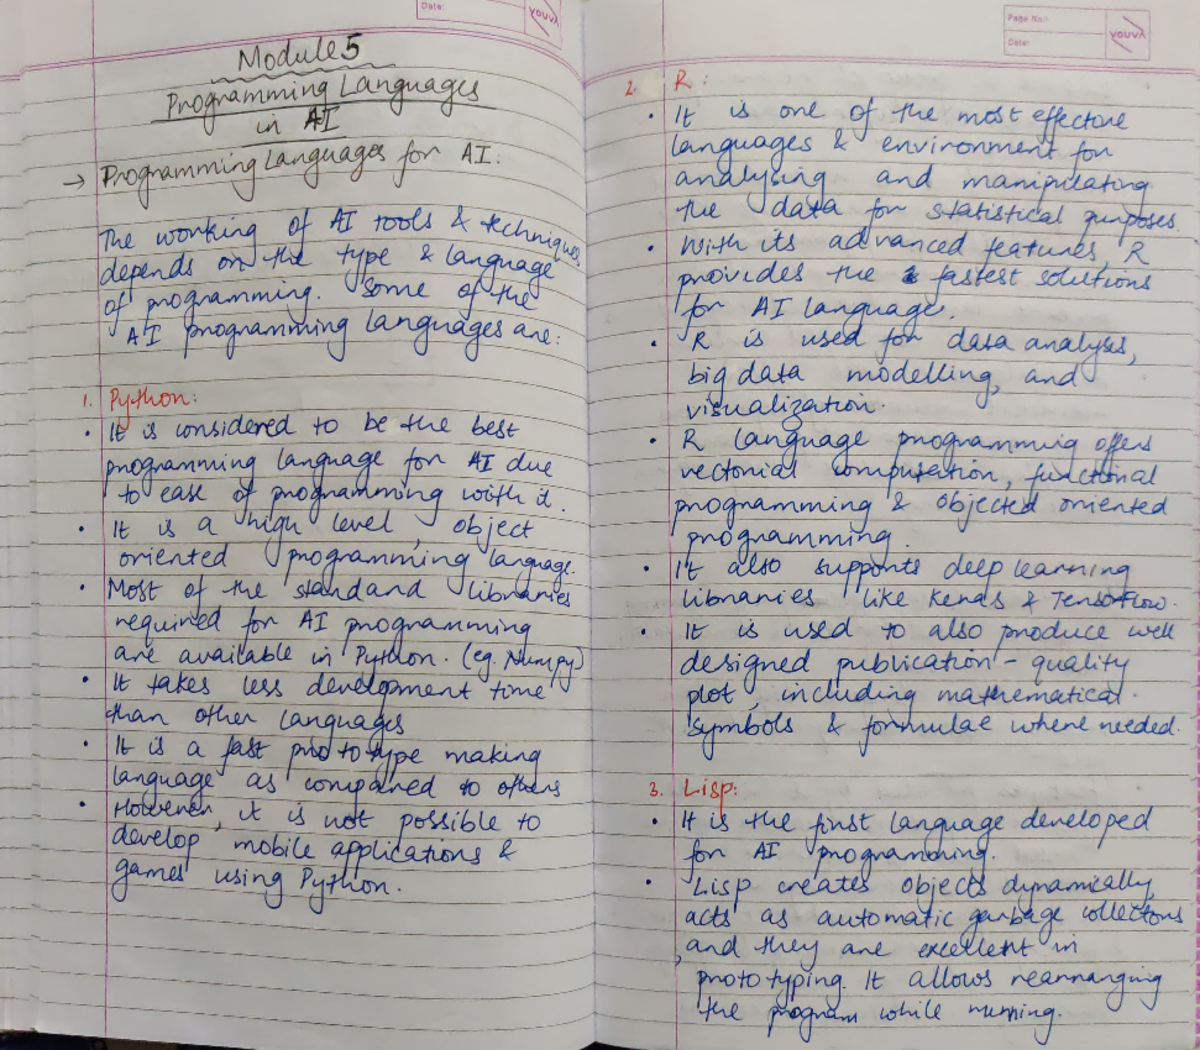 Date:
YOUVA
Module 5
Programming Languages
in AI
→ Programming Languages for AI:
The working of AI tools & techniques
depends on the type & language
of programming. Some of the
AI programming languages are:
1. Python:
• It is considered to be the best
programming language for AI due
to ease of programming with it.
• It is a high level, object
oriented programming language.
• Most of the standard libraries
required for AI programming
are available in Python. (eg. Numpy)
• It takes less development time
than other languages
• It is a fast prototype making
language as compared to others
• However, it is not possible to
develop mobile applications &
games using Python.
Page No.:
Date:
YOUVA
2. R:
• It is one of the most effective
languages & environment for
analysing and manipulating
the data for statistical purposes.
• With its advanced features, R
provides the fastest solutions
for AI language.
• R is used for data analysis,
big data modelling, and
visualization.
• R language programming offers
vectorial computation, functional
programming & objected oriented
programming.
• It also supports deep learning
libraries like Keras & TensorFlow.
• It is used to also produce well
designed publication-quality
plot, including mathematical
symbols & formulae where needed.
3. Lisp:
• It is the first language developed
for AI programming.
• Lisp creates objects dynamically,
acts as automatic garbage collectors
,and they are excellent in
prototyping. It allows rearranging
the program while running.